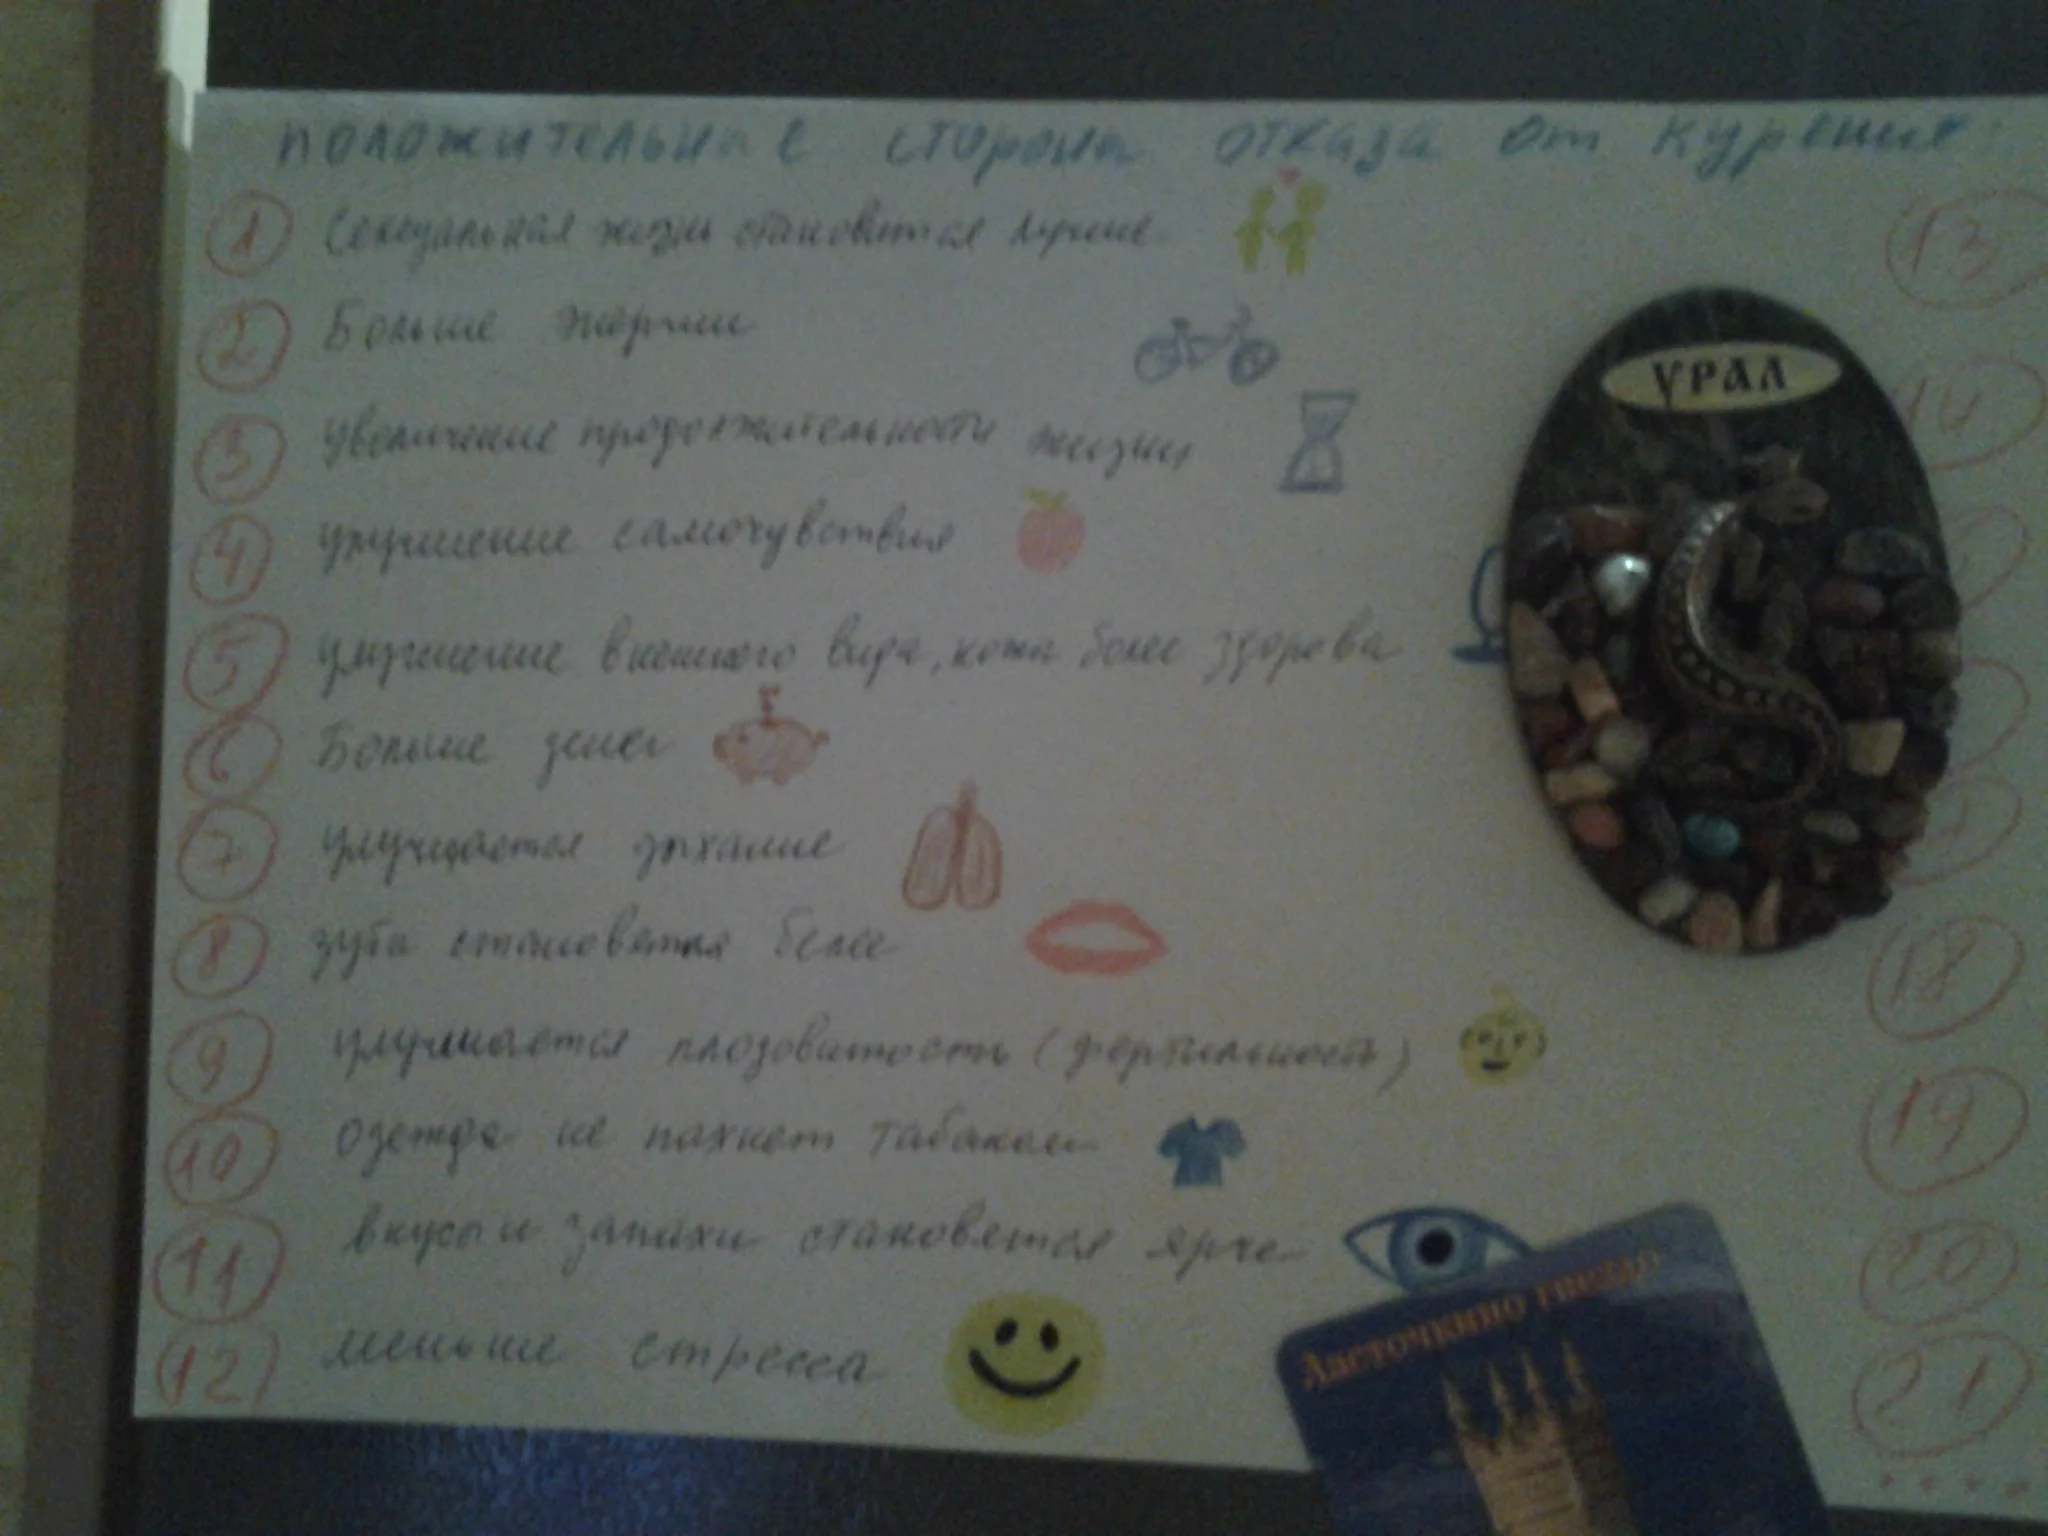 положительные стороны отказа от курения:
1 Сексуальная жизнь становится лучше
2 Больше энергии
3 увеличение продолжительности жизни
4 улучшение самочувствия
5 улучшение внешнего вида, кожа более здорова
6 Больше денег
7 улучшается дыхание
8 зубы становятся белее
9 улучшается плодовитость (фертильность)
10 одежда не пахнет табаком
11 вкусы и запахи становятся ярче
12 меньше стресса
13
14
18
19
20
21
УРАЛ
Ласточкино гнездо